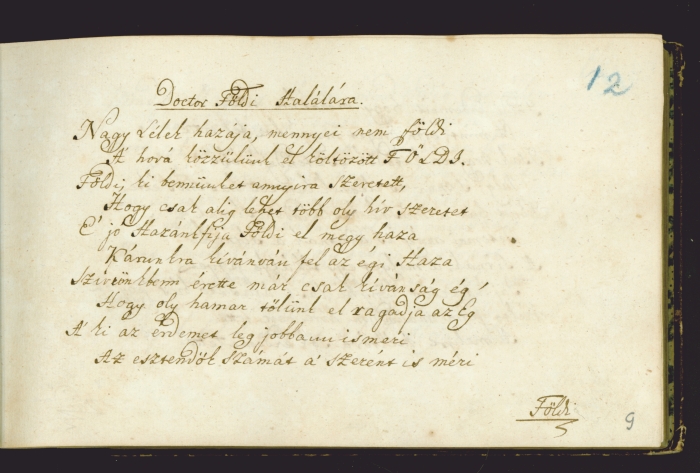 12
Doctor Földi Halálára.
Nagy Lélek hazája, mennyei nem földi
A' hová közzülünk el költözött FÖLDI.
Földi, ki bennünket annyira szeretett,
Hogy csak alig lehet több oly hív szeretet
E' jó Hazánkfija Földi el megy haza
Kárunkra kivánván fel az égi Haza
Szivünkbenn érette már csak kivánság ég,
Hogy oly hamar tőlünk el ragadja az Ég
A' ki az érdemet leg jobbann ismeri
Az esztendők számát a' szerént is méri
Földi
9